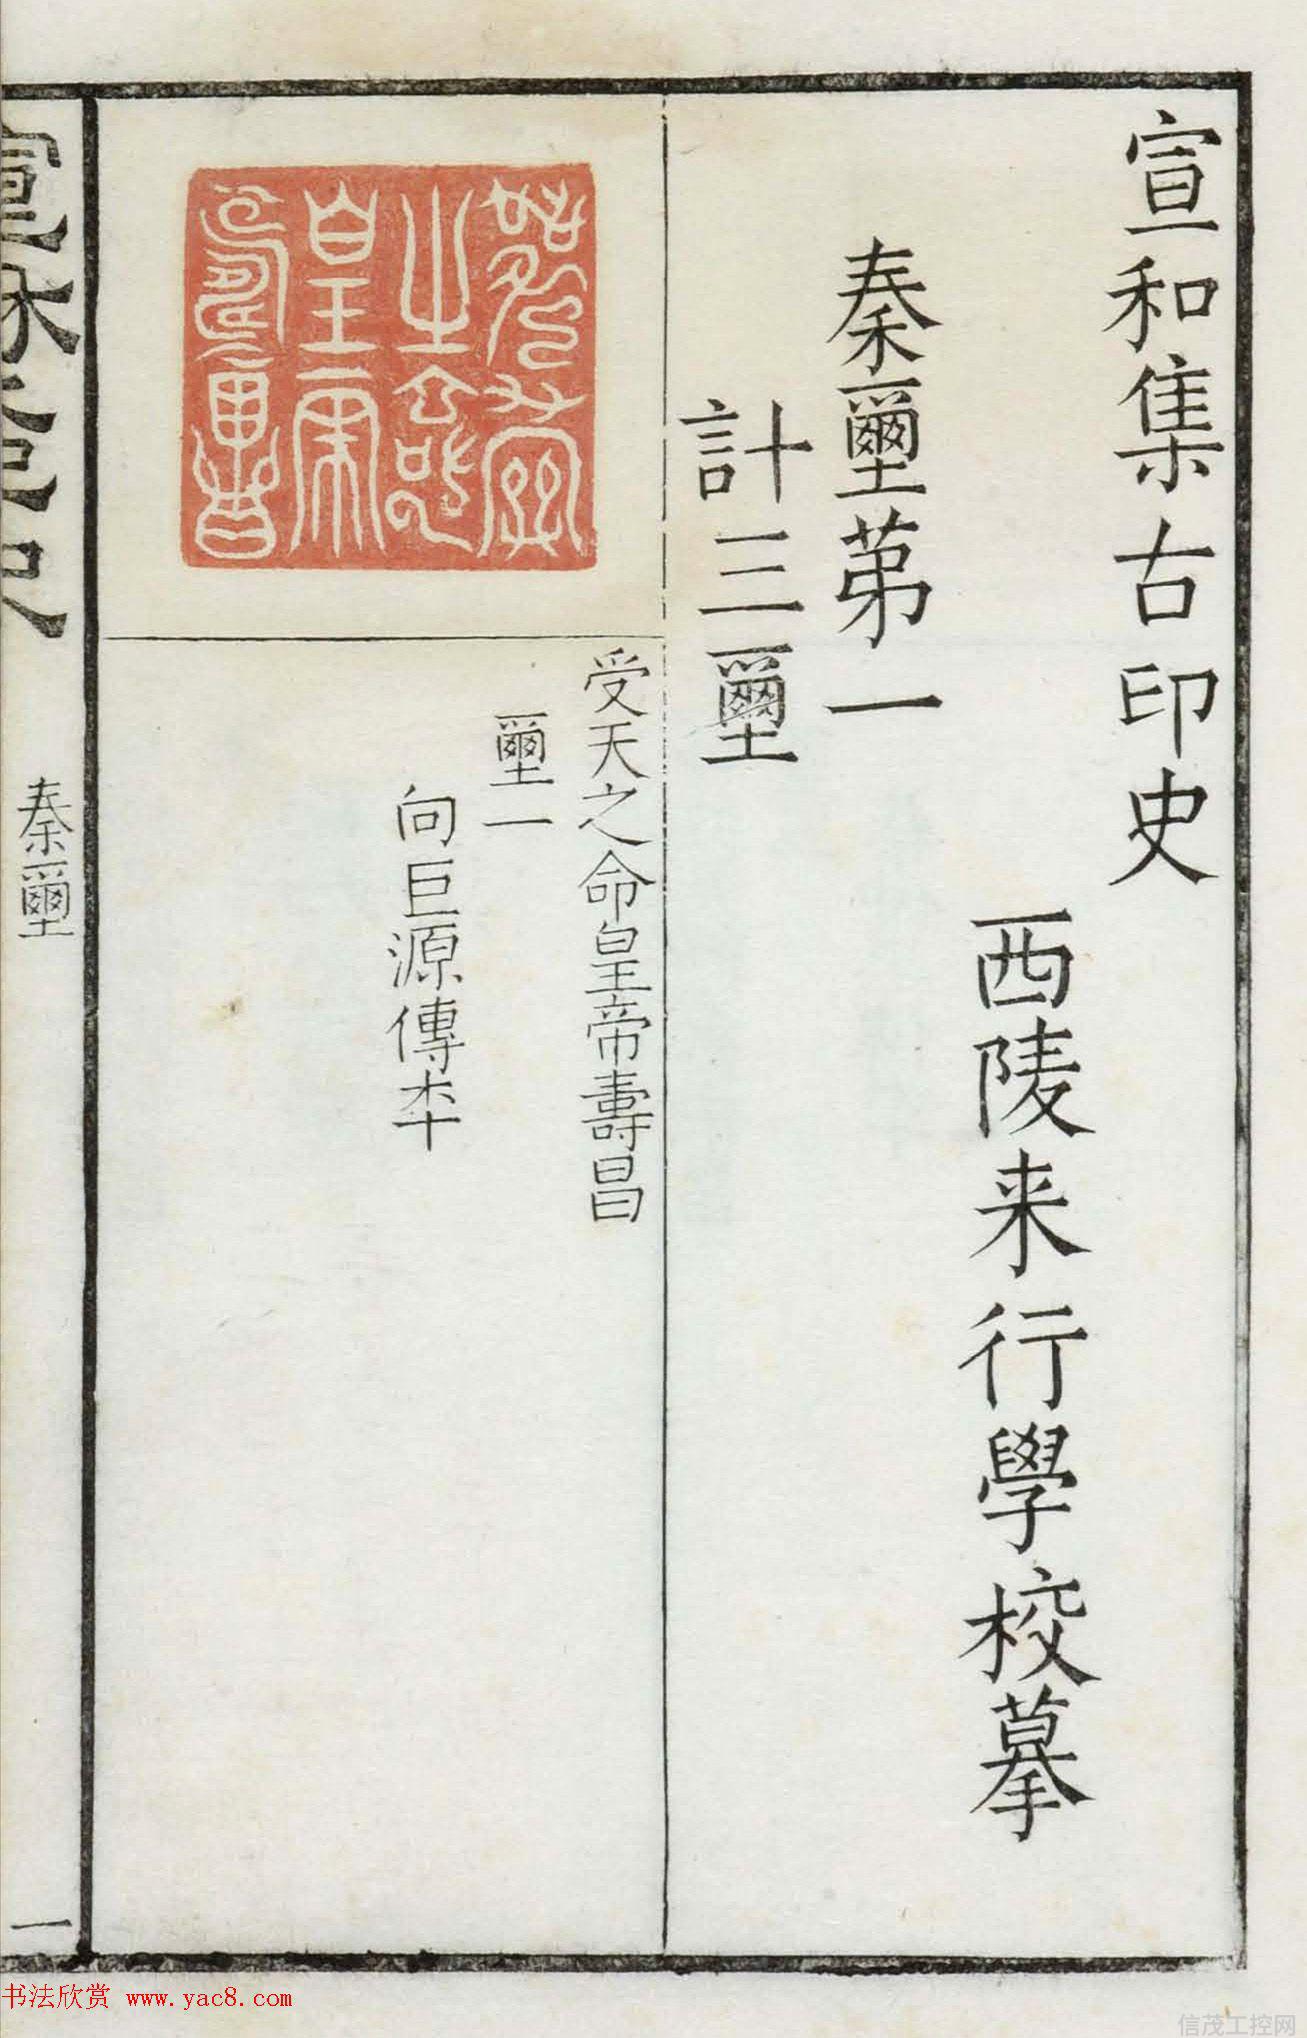 宣和集古印史
西陵来行學校摹
秦璽苐一
計三璽
受天
之命
皇帝
壽昌
受天之命皇帝壽昌
璽一
向巨源傳本
秦璽
一
书法欣赏 www.yac8.com
信茂工控网